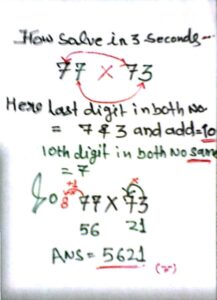 How Solve in 3 seconds--
77 × 73
Here last digit in both No.
= 7 & 3 and add=10
10th digit in both No same
= 7
So 8 77 × 73
56 21
ANS = 5621